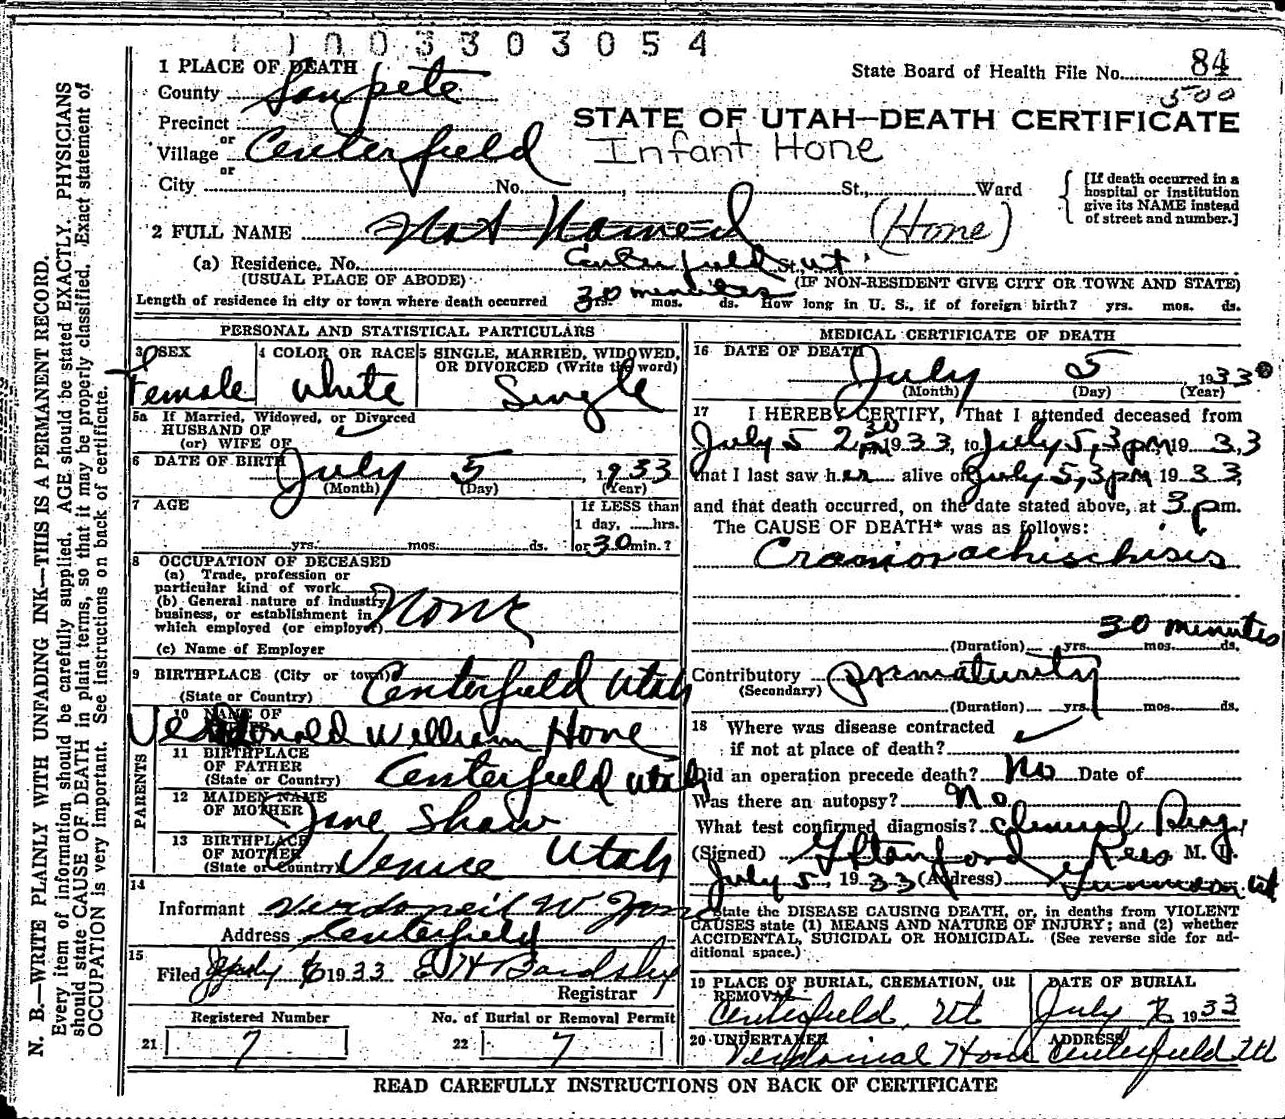 1 0 0 3 3 0 3 0 5 4
1 PLACE OF DEATH
State Board of Health File No. 84
500
County Sanpete
STATE OF UTAH—DEATH CERTIFICATE
Precinct
or
Village Centerfield
Infant Hone
or
City No. St., Ward
[If death occurred in a
hospital or institution
give its NAME instead
of street and number.]
2 FULL NAME Not Named (Hone)
(a) Residence. No. Centerfield St., Ut.
(USUAL PLACE OF ABODE) (IF NON-RESIDENT GIVE CITY OR TOWN AND STATE)
Length of residence in city or town where death occurred 30 minutes yrs. mos. ds. How long in U. S., if of foreign birth? yrs. mos. ds.
PERSONAL AND STATISTICAL PARTICULARS
3 SEX
Female
4 COLOR OR RACE
White
5 SINGLE, MARRIED, WIDOWED,
OR DIVORCED (Write the word)
Single
5a If Married, Widowed, or Divorced
HUSBAND OF
(or) WIFE OF
6 DATE OF BIRTH July 5, 1933
(Month) (Day) (Year)
7 AGE
yrs. mos. ds.
If LESS than
1 day, hrs.
or 30 min.?
8 OCCUPATION OF DECEASED
(a) Trade, profession or
particular kind of work
(b) General nature of industry,
business, or establishment in
which employed (or employer) None
(c) Name of Employer
9 BIRTHPLACE (City or town) Centerfield Utah
(State or Country)
10 NAME OF
William Hone
PARENTS
11 BIRTHPLACE
OF FATHER
(State or Country) Centerfield Utah
12 MAIDEN NAME
OF MOTHER Jane Shaw
13 BIRTHPLACE
OF MOTHER
(State or Country) Venice Utah
14
Informant W
Address Centerfield
15
Filed July 6 1933 E H Bardsley
Registrar
Registered Number
21 7
No. of Burial or Removal Permit
22 7
MEDICAL CERTIFICATE OF DEATH
16 DATE OF DEATH
July 5 1933
(Month) (Day) (Year)
17 I HEREBY CERTIFY, That I attended deceased from
July 5 2 30 PM 1933, to July 5, 3 pm 1933
that I last saw her alive on July 5, 3 pm 1933,
and that death occurred, on the date stated above, at 3 p.m.
The CAUSE OF DEATH* was as follows:
Craniorachischisis
30 minutes
(Duration) yrs. mos. ds.
Contributory prematurity
(Secondary)
(Duration) yrs. mos. ds.
18 Where was disease contracted
if not at place of death?
Did an operation precede death? No Date of
Was there an autopsy? No
What test confirmed diagnosis? Clinical Diag.
(Signed) G Stanford Rees M. D.
July 5, 1933 (Address) Gunnison Ut
State the DISEASE CAUSING DEATH, or, in deaths from VIOLENT
CAUSES state (1) MEANS AND NATURE OF INJURY; and (2) whether
ACCIDENTAL, SUICIDAL OR HOMICIDAL. (See reverse side for ad-
ditional space.)
19 PLACE OF BURIAL, CREMATION, OR
REMOVAL
Centerfield, Ut
DATE OF BURIAL
July 6 1933
20 UNDERTAKER
Hone
ADDRESS
Centerfield Ut
READ CAREFULLY INSTRUCTIONS ON BACK OF CERTIFICATE
N. B.—WRITE PLAINLY WITH UNFADING INK—THIS IS A PERMANENT RECORD.
Every item of information should be carefully supplied. AGE should be stated EXACTLY. PHYSICIANS
should state CAUSE OF DEATH in plain terms, so that it may be properly classified. Exact statement of
OCCUPATION is very important. See instructions on back of certificate.